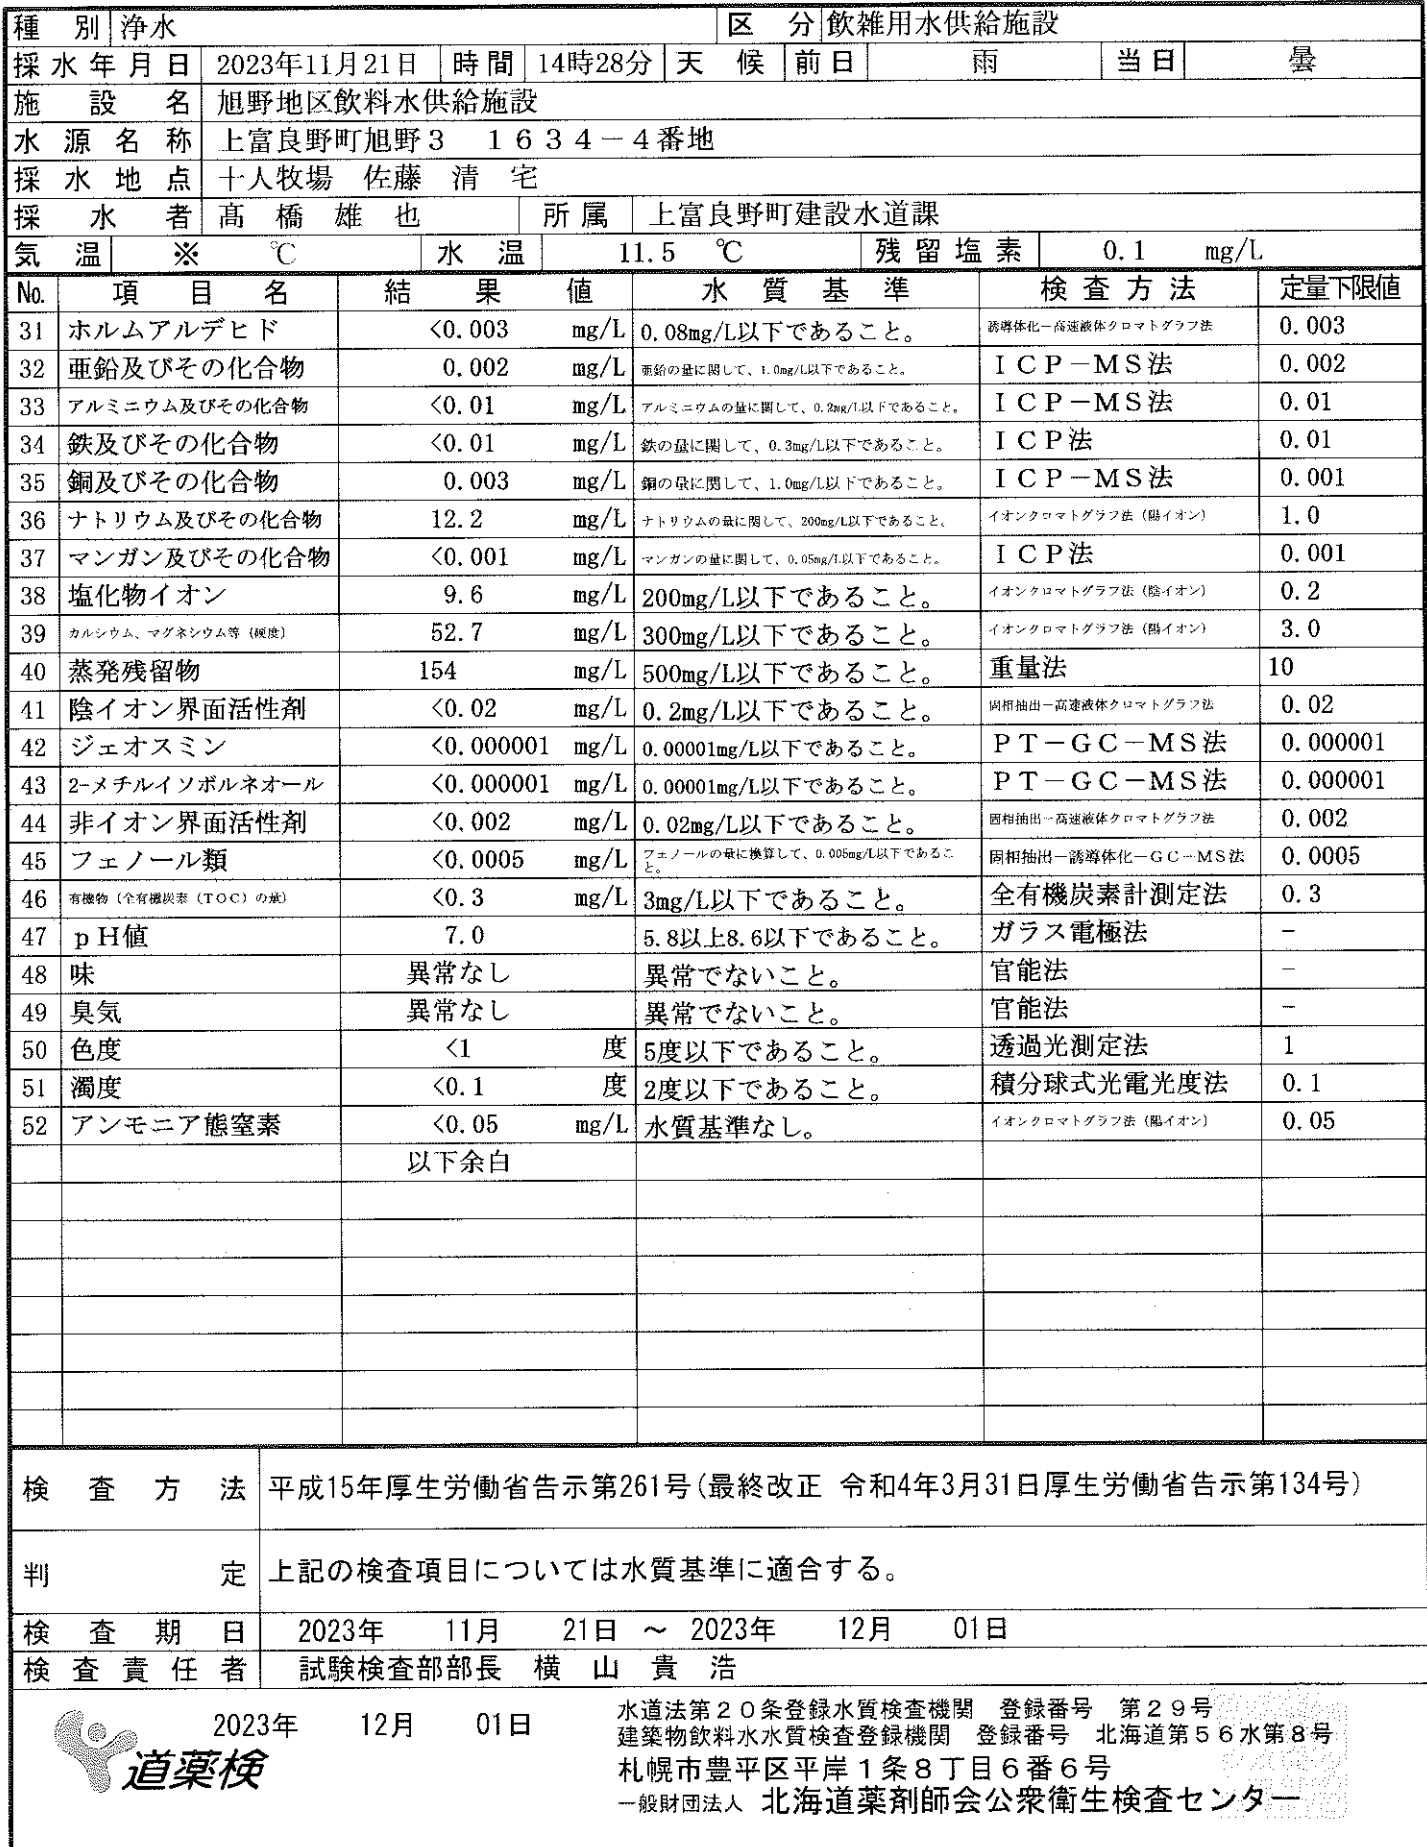 種 別 浄水 区 分 飲雑用水供給施設
採水年月日 2023年11月21日 時間 14時28分 天 候 前日 雨 当日 曇
施 設 名 旭野地区飲料水供給施設
水源名称 上富良野町旭野3 1634-4番地
採水地点 十人牧場 佐藤 清 宅
採 水 者 髙 橋 雄 也 所属 上富良野町建設水道課
気 温 ※ ℃ 水 温 11.5 ℃ 残留塩素 0.1 mg/L
No. 項 目 名 結 果 値 水 質 基 準 検査方法 定量下限値
31 ホルムアルデヒド <0.003 mg/L 0.08mg/L以下であること。 誘導体化-高速液体クロマトグラフ法 0.003
32 亜鉛及びその化合物 0.002 mg/L 亜鉛の量に関して、1.0mg/L以下であること。 ICP-MS法 0.002
33 アルミニウム及びその化合物 <0.01 mg/L アルミニウムの量に関して、0.2mg/L以下であること。 ICP-MS法 0.01
34 鉄及びその化合物 <0.01 mg/L 鉄の量に関して、0.3mg/L以下であること。 ICP法 0.01
35 銅及びその化合物 0.003 mg/L 銅の量に関して、1.0mg/L以下であること。 ICP-MS法 0.001
36 ナトリウム及びその化合物 12.2 mg/L ナトリウムの量に関して、200mg/L以下であること。 イオンクロマトグラフ法(陽イオン) 1.0
37 マンガン及びその化合物 <0.001 mg/L マンガンの量に関して、0.05mg/L以下であること。 ICP法 0.001
38 塩化物イオン 9.6 mg/L 200mg/L以下であること。 イオンクロマトグラフ法(陰イオン) 0.2
39 カルシウム、マグネシウム等(硬度) 52.7 mg/L 300mg/L以下であること。 イオンクロマトグラフ法(陽イオン) 3.0
40 蒸発残留物 154 mg/L 500mg/L以下であること。 重量法 10
41 陰イオン界面活性剤 <0.02 mg/L 0.2mg/L以下であること。 固相抽出-高速液体クロマトグラフ法 0.02
42 ジェオスミン <0.000001 mg/L 0.00001mg/L以下であること。 PT-GC-MS法 0.000001
43 2-メチルイソボルネオール <0.000001 mg/L 0.00001mg/L以下であること。 PT-GC-MS法 0.000001
44 非イオン界面活性剤 <0.002 mg/L 0.02mg/L以下であること。 固相抽出-高速液体クロマトグラフ法 0.002
45 フェノール類 <0.0005 mg/L フェノールの量に換算して、0.005mg/L以下であること。 固相抽出-誘導体化-GC-MS法 0.0005
46 有機物(全有機炭素(TOC)の量) <0.3 mg/L 3mg/L以下であること。 全有機炭素計測定法 0.3
47 pH値 7.0 5.8以上8.6以下であること。 ガラス電極法 -
48 味 異常なし 異常でないこと。 官能法 -
49 臭気 異常なし 異常でないこと。 官能法 -
50 色度 <1 度 5度以下であること。 透過光測定法 1
51 濁度 <0.1 度 2度以下であること。 積分球式光電光度法 0.1
52 アンモニア態窒素 <0.05 mg/L 水質基準なし。 イオンクロマトグラフ法(陽イオン) 0.05
以下余白
検 査 方 法 平成15年厚生労働省告示第261号(最終改正 令和4年3月31日厚生労働省告示第134号)
判 定 上記の検査項目については水質基準に適合する。
検 査 期 日 2023年 11月 21日 ~ 2023年 12月 01日
検査責任者 試験検査部部長 横 山 貴 浩
2023年 12月 01日
道薬検
水道法第20条登録水質検査機関 登録番号 第29号
建築物飲料水水質検査登録機関 登録番号 北海道第56水第8号
札幌市豊平区平岸1条8丁目6番6号
一般財団法人 北海道薬剤師会公衆衛生検査センター